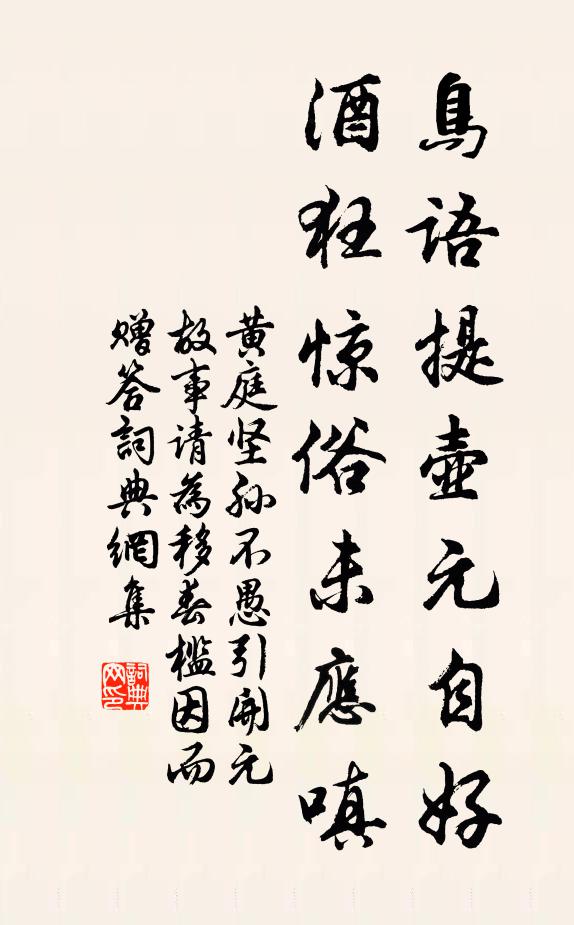 鳥語提壺元自好
酒狂惊俗未應嗔
黄庭坚孙不愚引開元
故事请為移春槛因而
赠答詞典網集
詞典网印